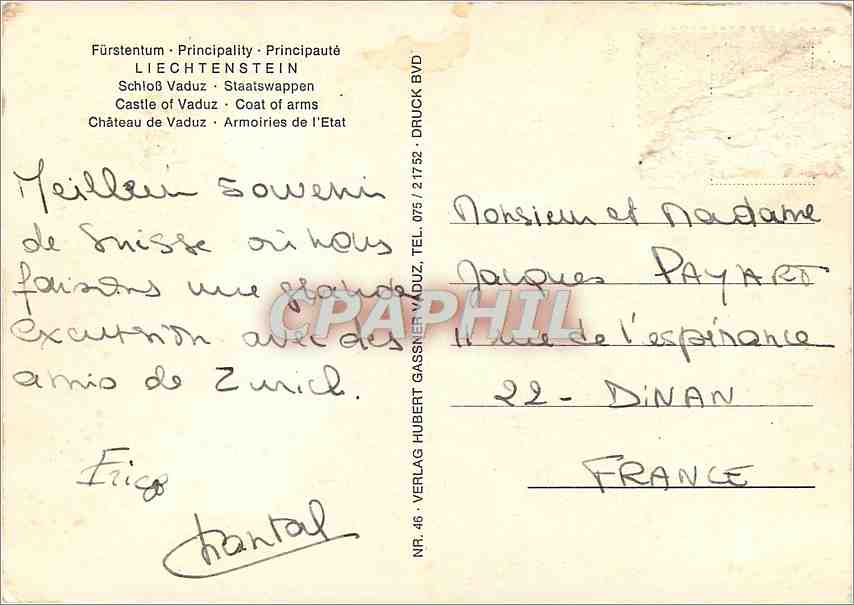 Fürstentum · Principality · Principauté
LIECHTENSTEIN
Schloß Vaduz · Staatswappen
Castle of Vaduz · Coat of arms
Château de Vaduz · Armoiries de l'Etat
Meilleur souvenir
de Suisse où nous
faisons une grande
excursion avec des
amis de Zurich.
Chantal
NR. 46 · VERLAG HUBERT GASSNER VADUZ, TEL. 075 / 2 17 52 · DRUCK BVD
Monsieur et Madame
Jacques PAYART
11 rue de l'espérance
22 - DINAN
FRANCE
CPAPHIL